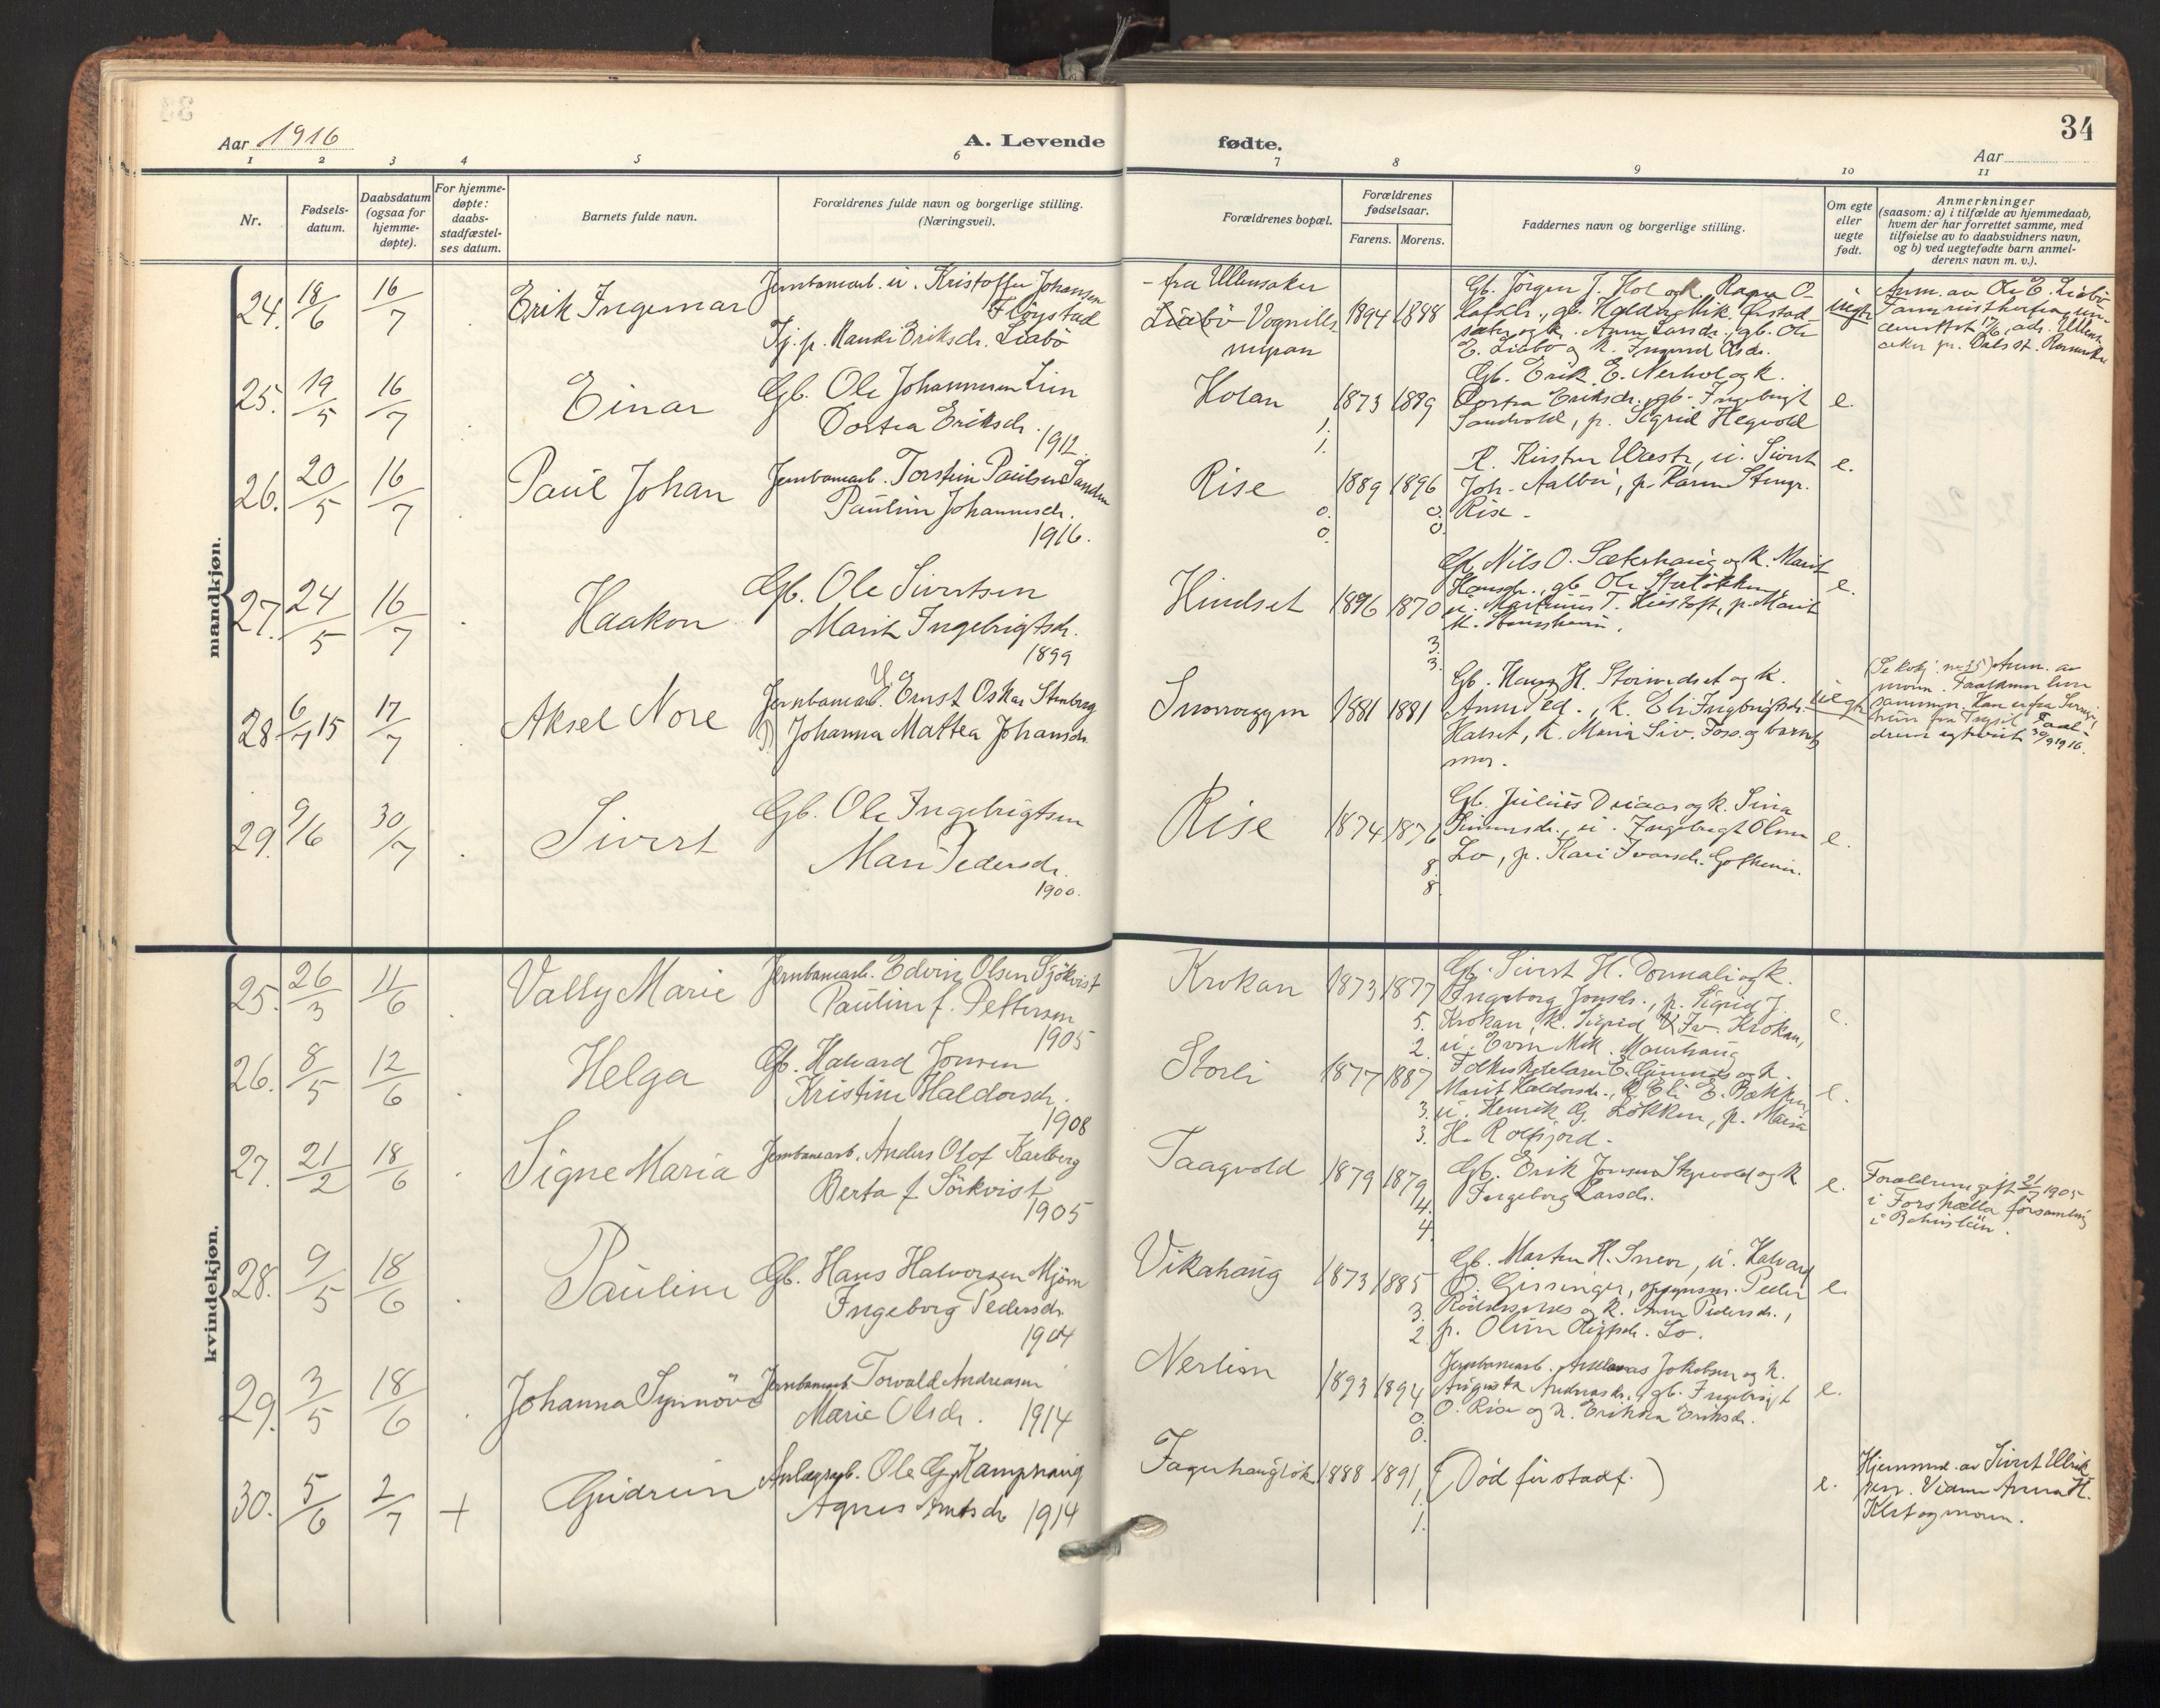 34
Aar 1916
A. Levende
fødte.
Aar
1 2 3 4 5 6 7 8 9 10 11
Nr.
Fødsels-
datum.
Daabsdatum
(ogsaa for
hjemme-
døpte).
For hjemme-
døpte:
daabs-
stadfæstel-
ses datum.
Barnets fulde navn.
Forældrenes fulde navn og borgerlige stilling.
(Næringsvei).
Forældrenes bopæl.
Forældrenes
fødselsaar.
Farens. Morens.
Faddernes navn og borgerlige stilling.
Om egte
eller
uegte
født.
Anmerkninger
(saasom: a) i tilfælde av hjemmedaab,
hvem der har forrettet samme, med
tilføielse av to daabsvidners navn,
og b) ved uegtefødte barn anmel-
derens navn m. v.).
mandkjøn.
24. 18/6 16/7
Erik Ingemar
Jernbanearb. u. Kristoffer Johansen
Fløystad
Tj. p. Randi Eriksdr. Liabö
- fra Ullensaker
Liabö Vognills
myran
1894 1888
Gb. Jörgen J. Hol og k. Ragna O-
lafsdr., gb. Haldor Mik.
og k. Anne Larsdr., gb. Ole
E. Liabö og k. Ingrid Olsdr.
uegte
Anm. av Ole E. Liabö
25. 19/5 16/7
Einar
Gb. Ole Johannesen Lien
Dortea Eriksdr.
1912.
Holan
1873 1889
1.
1.
Gb. Erik E. Nerhol og k.
Dortea Eriksdr., gb. Ingebrigt
Sandvold, p. Sigrid Hegvold
e.
26. 20/5 16/7
Paul Johan
Jernbanearb. Torstein Paulsen Sanden
Pauline Johannesdr.
1916.
Rise
1889 1896
0. 0.
0. 0.
K. Kirsten Vastr, u. Sivert
Joh. Aalbu, p. Karen Stengr.
Rise -
e.
27. 24/5 16/7
Haakon
Gb. Ole Sivertsen
Marit Ingebrigtsdr.
1899
Hindset
1896 1870
3.
3.
Gb. Nils O. Sæterhaug og k. Marit
Hansdr., gb. Ole Storløkken,
u. Martinus T. Liastoft, p. Marit
M. Stensheim.
e.
28 6/7 15 17/7
Aksel Nore
Jernbanearb. U. Ernst Oskar Stenberg
P) Johanna Mattea Johansdr.
Snoveggen
1881 1881
Gb. Hans H. Storvedset og k.
Anne Ped., k. Eli Ingebrigtsdr.
Halset, k. Maria Siv. Foss. og barnets
mor.
uegte
(Se konf. nr 15) Anm. av
moren. Forældrene leve
sammen. Han er fra Sverige,
hun fra Trysil. Foræl-
drene egteviet 30/9 1916.
29. 9/6 30/7
Sivert
Gb. Ole Ingebrigtsen
Mari Pedersdr.
1900.
Rise
1874 1876
8
8
Gb. Julius Driaas og k. Sina
Simensdr., u. Ingebrigt Olsen
Lo, p. Kari Ivarsdr. Golheim.
e.
kvindekjøn.
25. 26/3 11/6
Vally Marie
Jernbanearb. Edvin Olsen Sjökvist
Pauline f. Petterson
1905
Krokan
1873 1877
5.
2.
Gb. Sivert H. Donnali og k.
Ingeborg Jonsdr., p. Sigrid J.
Krokan, k. Sigrid Iv. Krokan,
u. Even Mik. Maurhaug
e.
26. 8/5 12/6
Helga
Gb. Halvard Jonsen
Kristine Haldorsdr.
1908
Storli
1877 1887
3.
3.
Folkeskolelærer E. Gunnes og k.
Marit Haldorsdr., k. Eli E. Bækken,
u. Henrik G. Løkken, p. Maria
H. Rolfsjord -
e.
27. 21/2 18/6
Signe Maria
Jernbanearb. Anders Olof Karlberg
Berta f. Sörkvist
1905
Taagvold
1879 1879
4.
4.
Gb. Erik Jonsen Skjevold og k
Ingeborg Larsdr.
e.
Forældrene gift 21/7 1905
i Forshælla forsamling
i Bohuslän.
28. 9/5 18/6
Pauline
Gb. Hans Halvorsen Mjøen
Ingeborg Pedersdr.
1904
Vikahaug
1873 1885
3.
2.
Gb. Morten H. Snever, u. Halvard
O. Gissinger, opsynsm. Peder
og k. Anne Pedersdr.,
p. Oline Olsdr. Lo.
e.
29. 3/5 18/6
Johanna Synnöve
Jernbanearb. Torvald Andreasen
Marie Olsdr. 1914
Nerlien
1893 1894
0.
0.
Jernbanearb. Anselmas Jakobsen og k.
Augusta Andreasdr., gb. Ingebrigt
O. Rise og k. Erikka Eriksdr.
e.
30. 5/6 2/7 +
Gudrun
Anlægsarb. Ole G. Kamphaug
Agnes Arntsdr 1914
Fagerhaugløk
1888 1891
1.
1.
(Død før stadf.)
e.
Hjemmed. av Sivert Ulrik-
sen. Vidner Anna H.
Klet og moren.